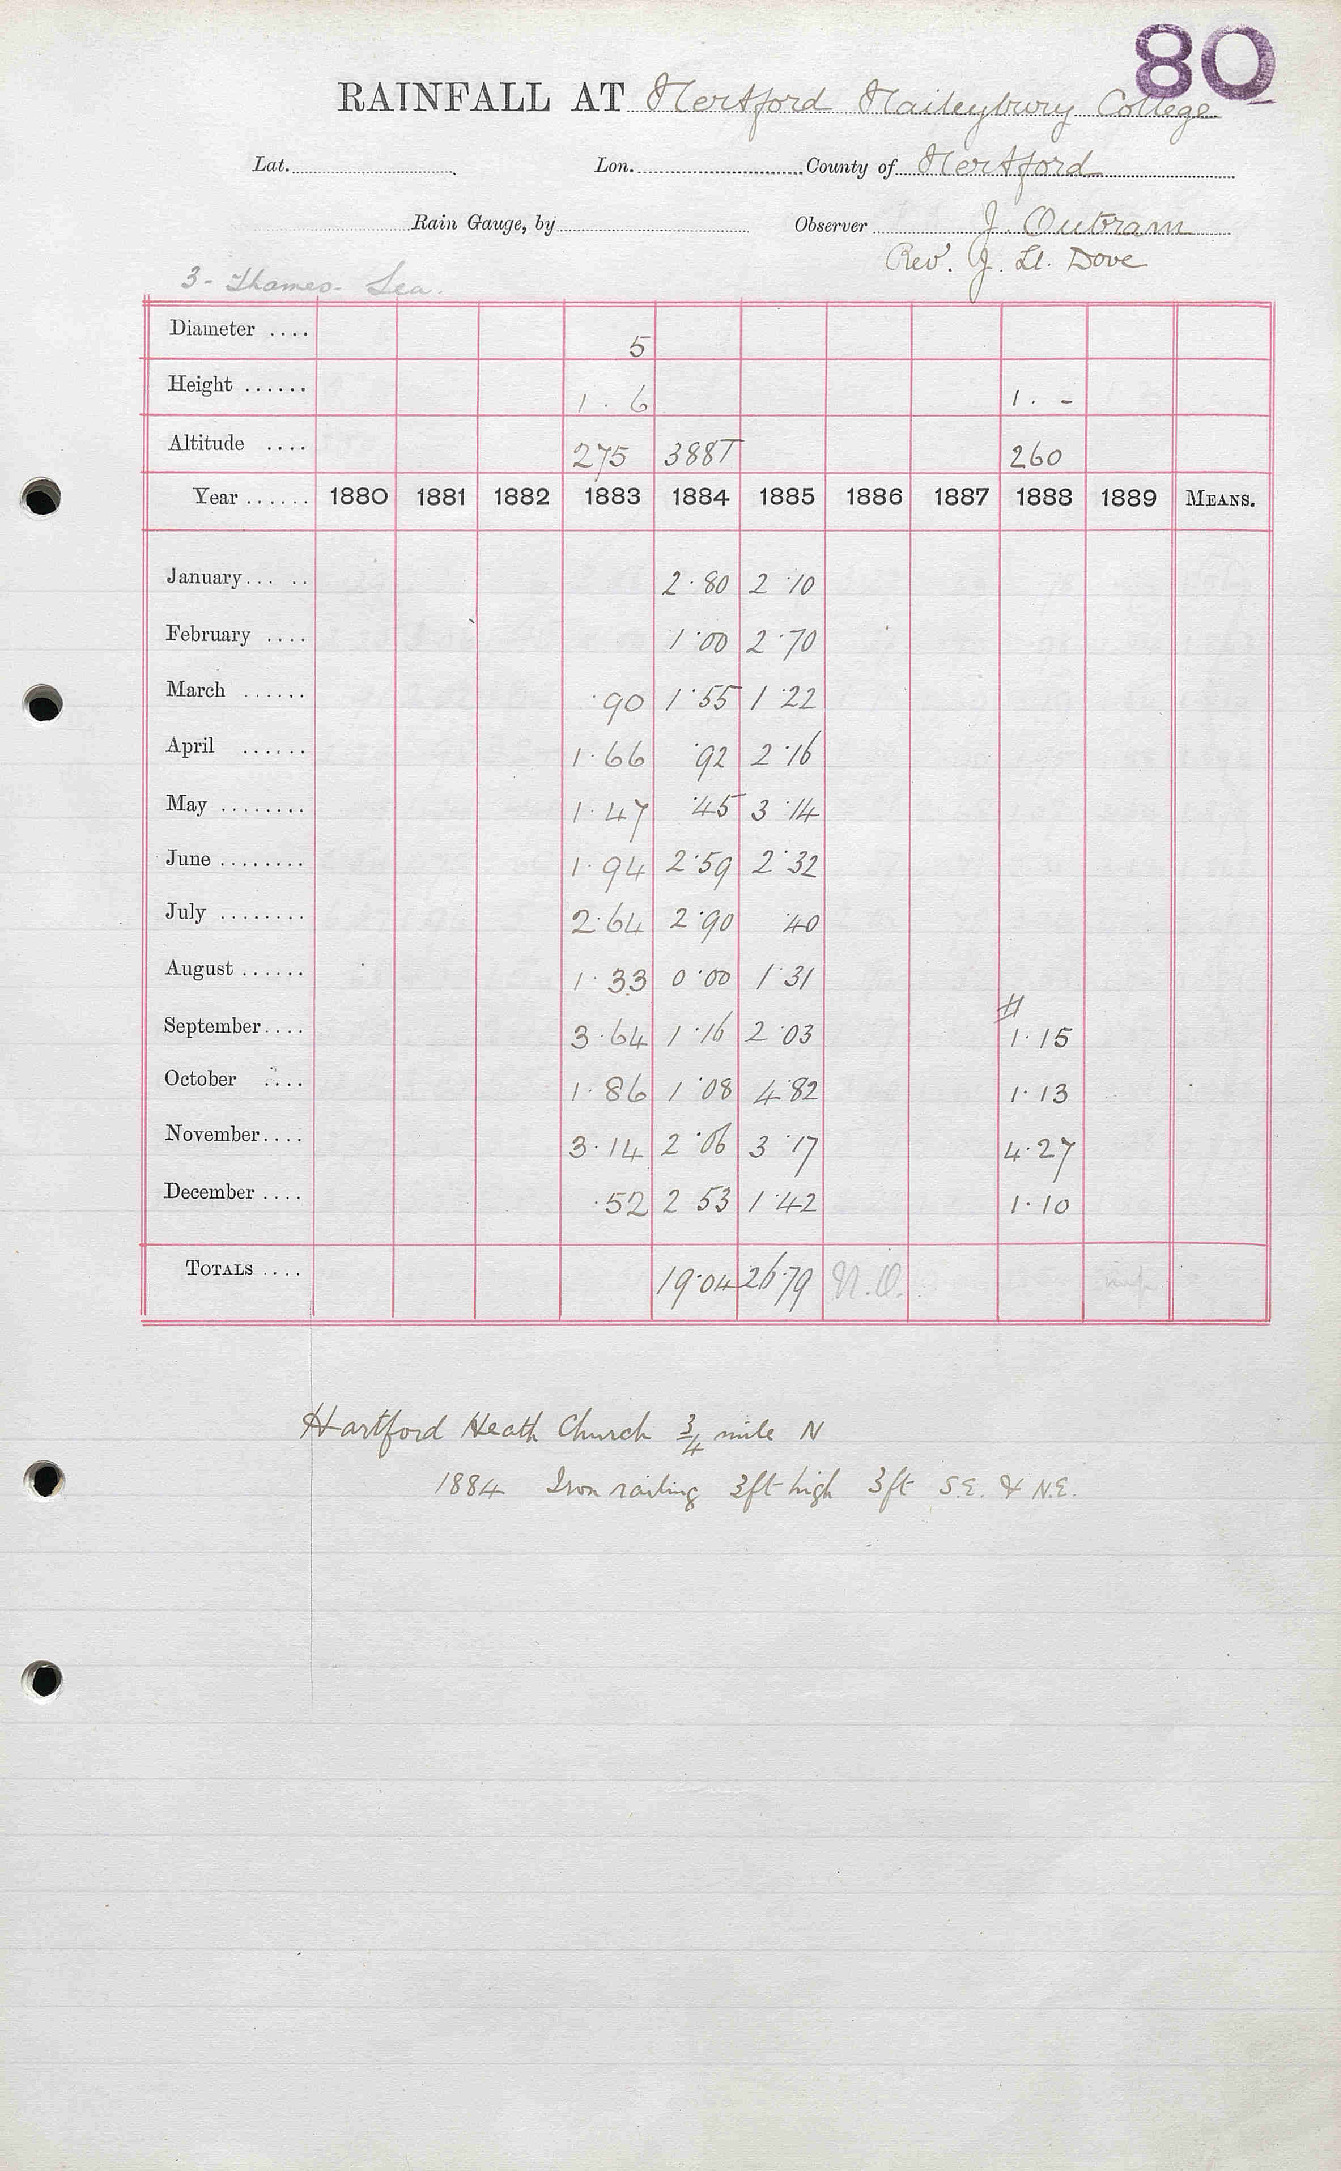 80
RAINFALL AT Hertford Haileybury College
Lat. Lon. County of Hertford
Rain Gauge, by Observer J. Outram
Rev. J. Ll. Dove
3 - Thames - Lea.
Diameter .... 5
Height ...... 1 . 6 1 . -
Altitude .... 275 388T 260
Year ...... 1880 1881 1882 1883 1884 1885 1886 1887 1888 1889 MEANS.
January... .. 2.80 2.10
February .... 1.00 2.70
March ...... .90 1.55 1.22
April ...... 1.66 .92 2.16
May ........ 1.47 .45 3.14
June ........ 1.94 2.59 2.32
July ........ 2.64 2.90 .40
August ...... 1.33 0.00 1.31
#
September.... 3.64 1.16 2.03 1.15
October .... 1.86 1.08 4.82 1.13
November.... 3.14 2.06 3.17 4.27
December .... .52 2 53 1.42 1.10
TOTALS .... 19.04 26.79 N.O.
Hartford Heath Church 3/4 mile N
1884 Iron railing 3ft high 3ft S.E. & N.E.